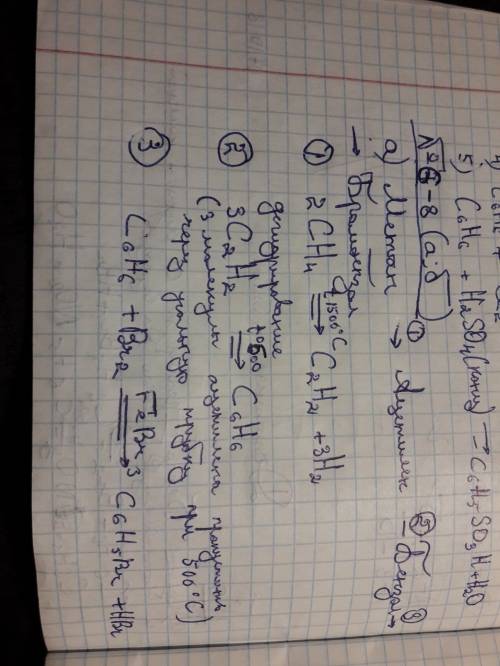 4) C6H6 +
5) C6H6 + H2SO4 (конц) → C6H5SO3H + H2O
№ 6-8 (а; б)
а) Метан ① → Ацетилен ② → Бензол ③ →
→ Бромбензол
① 2CH4 t,1500°C ⟹ C2H2 + 3H2
дегидрирование
② 3C2H2 t,600 ⟹ C6H6
(3 молекулы ацетилена
через трубку при 500°C)
③ C6H6 + Br2 FeBr3 ⟹ C6H5Br + HBr